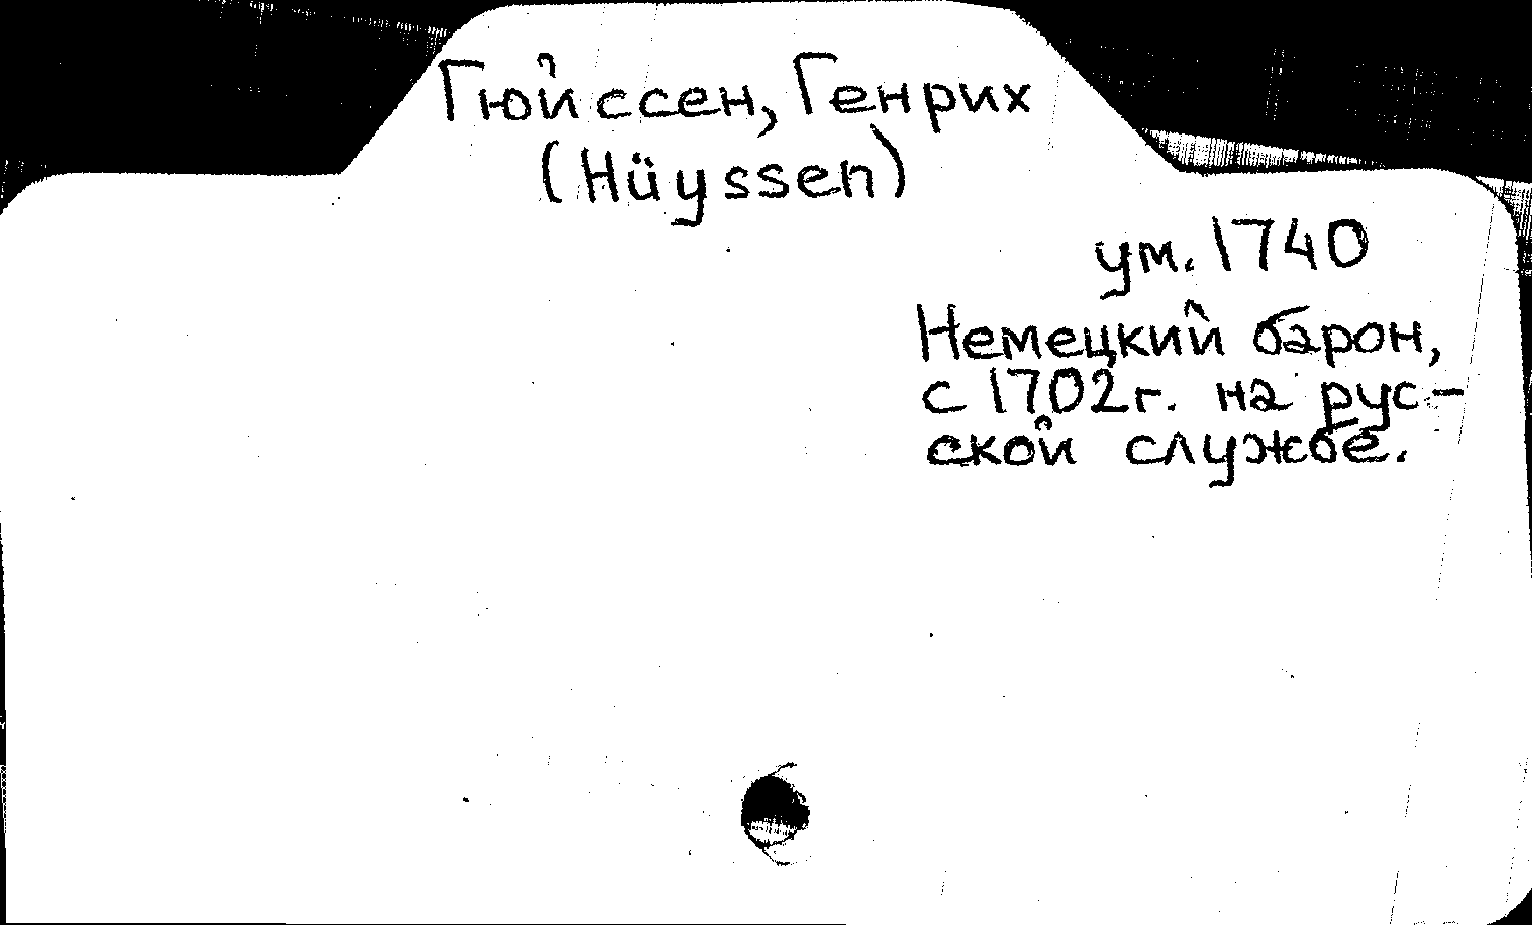 Гюйссен, Генрих
(Hüyssen)
ум. 1740
Немецкий барон,
с 1702г. на рус-
ской службе.